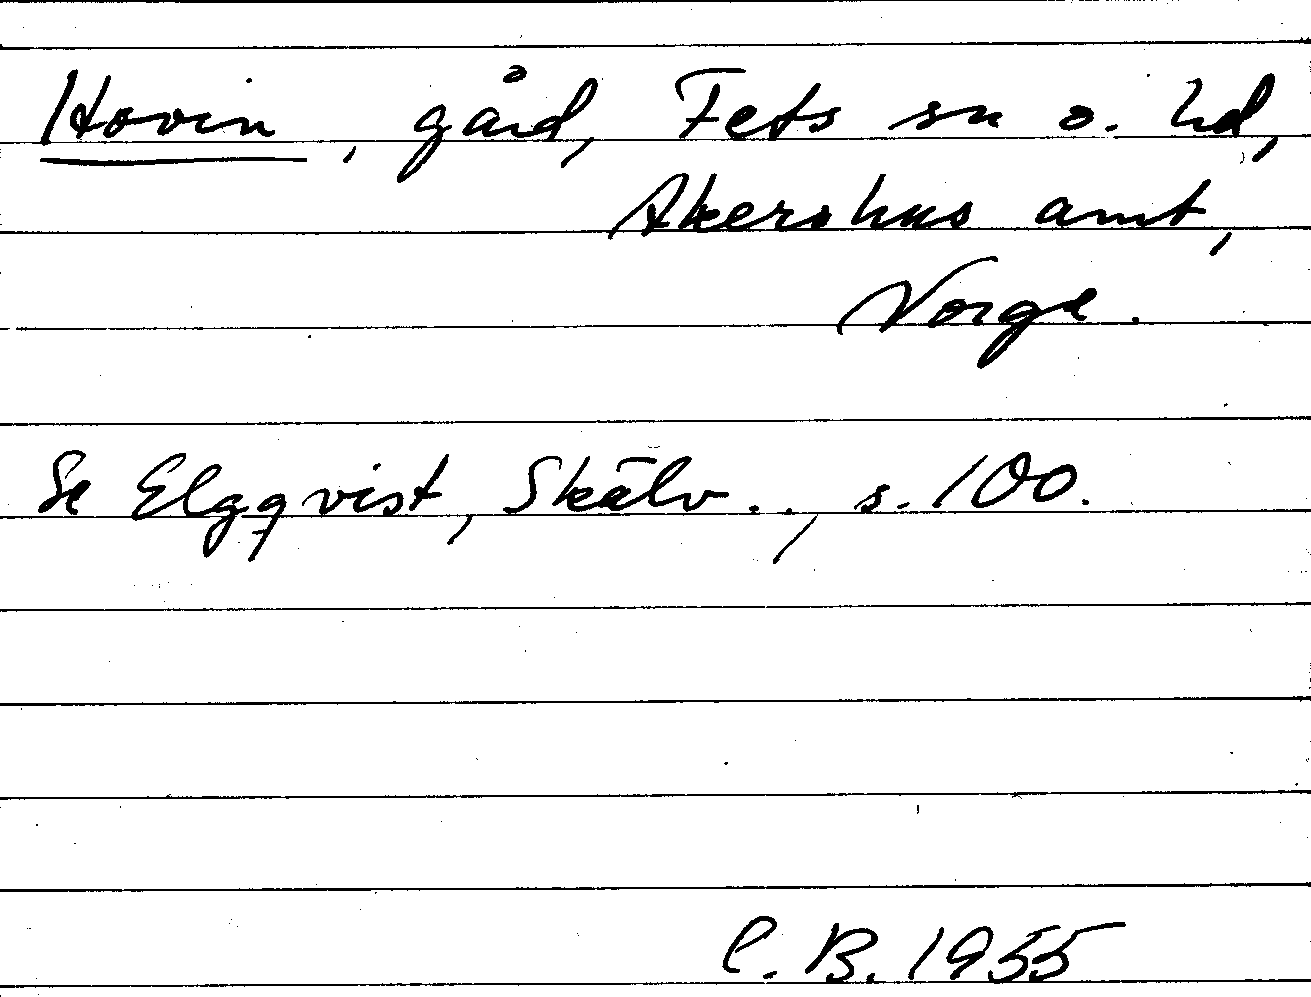 Hovin, gård, Fets sn o. hd,
Akershus amt,
Norge.
Se Elgqvist, Skälv.., s. 100.
C. B. 1955